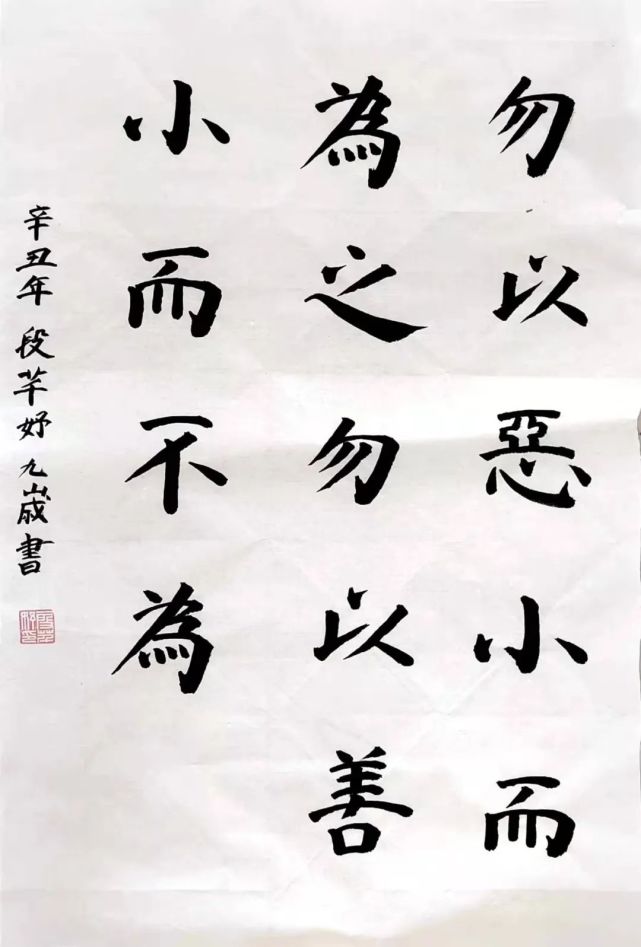 勿以惡小而
為之勿以善
小而不為
辛丑年 段芊妤 九歲書